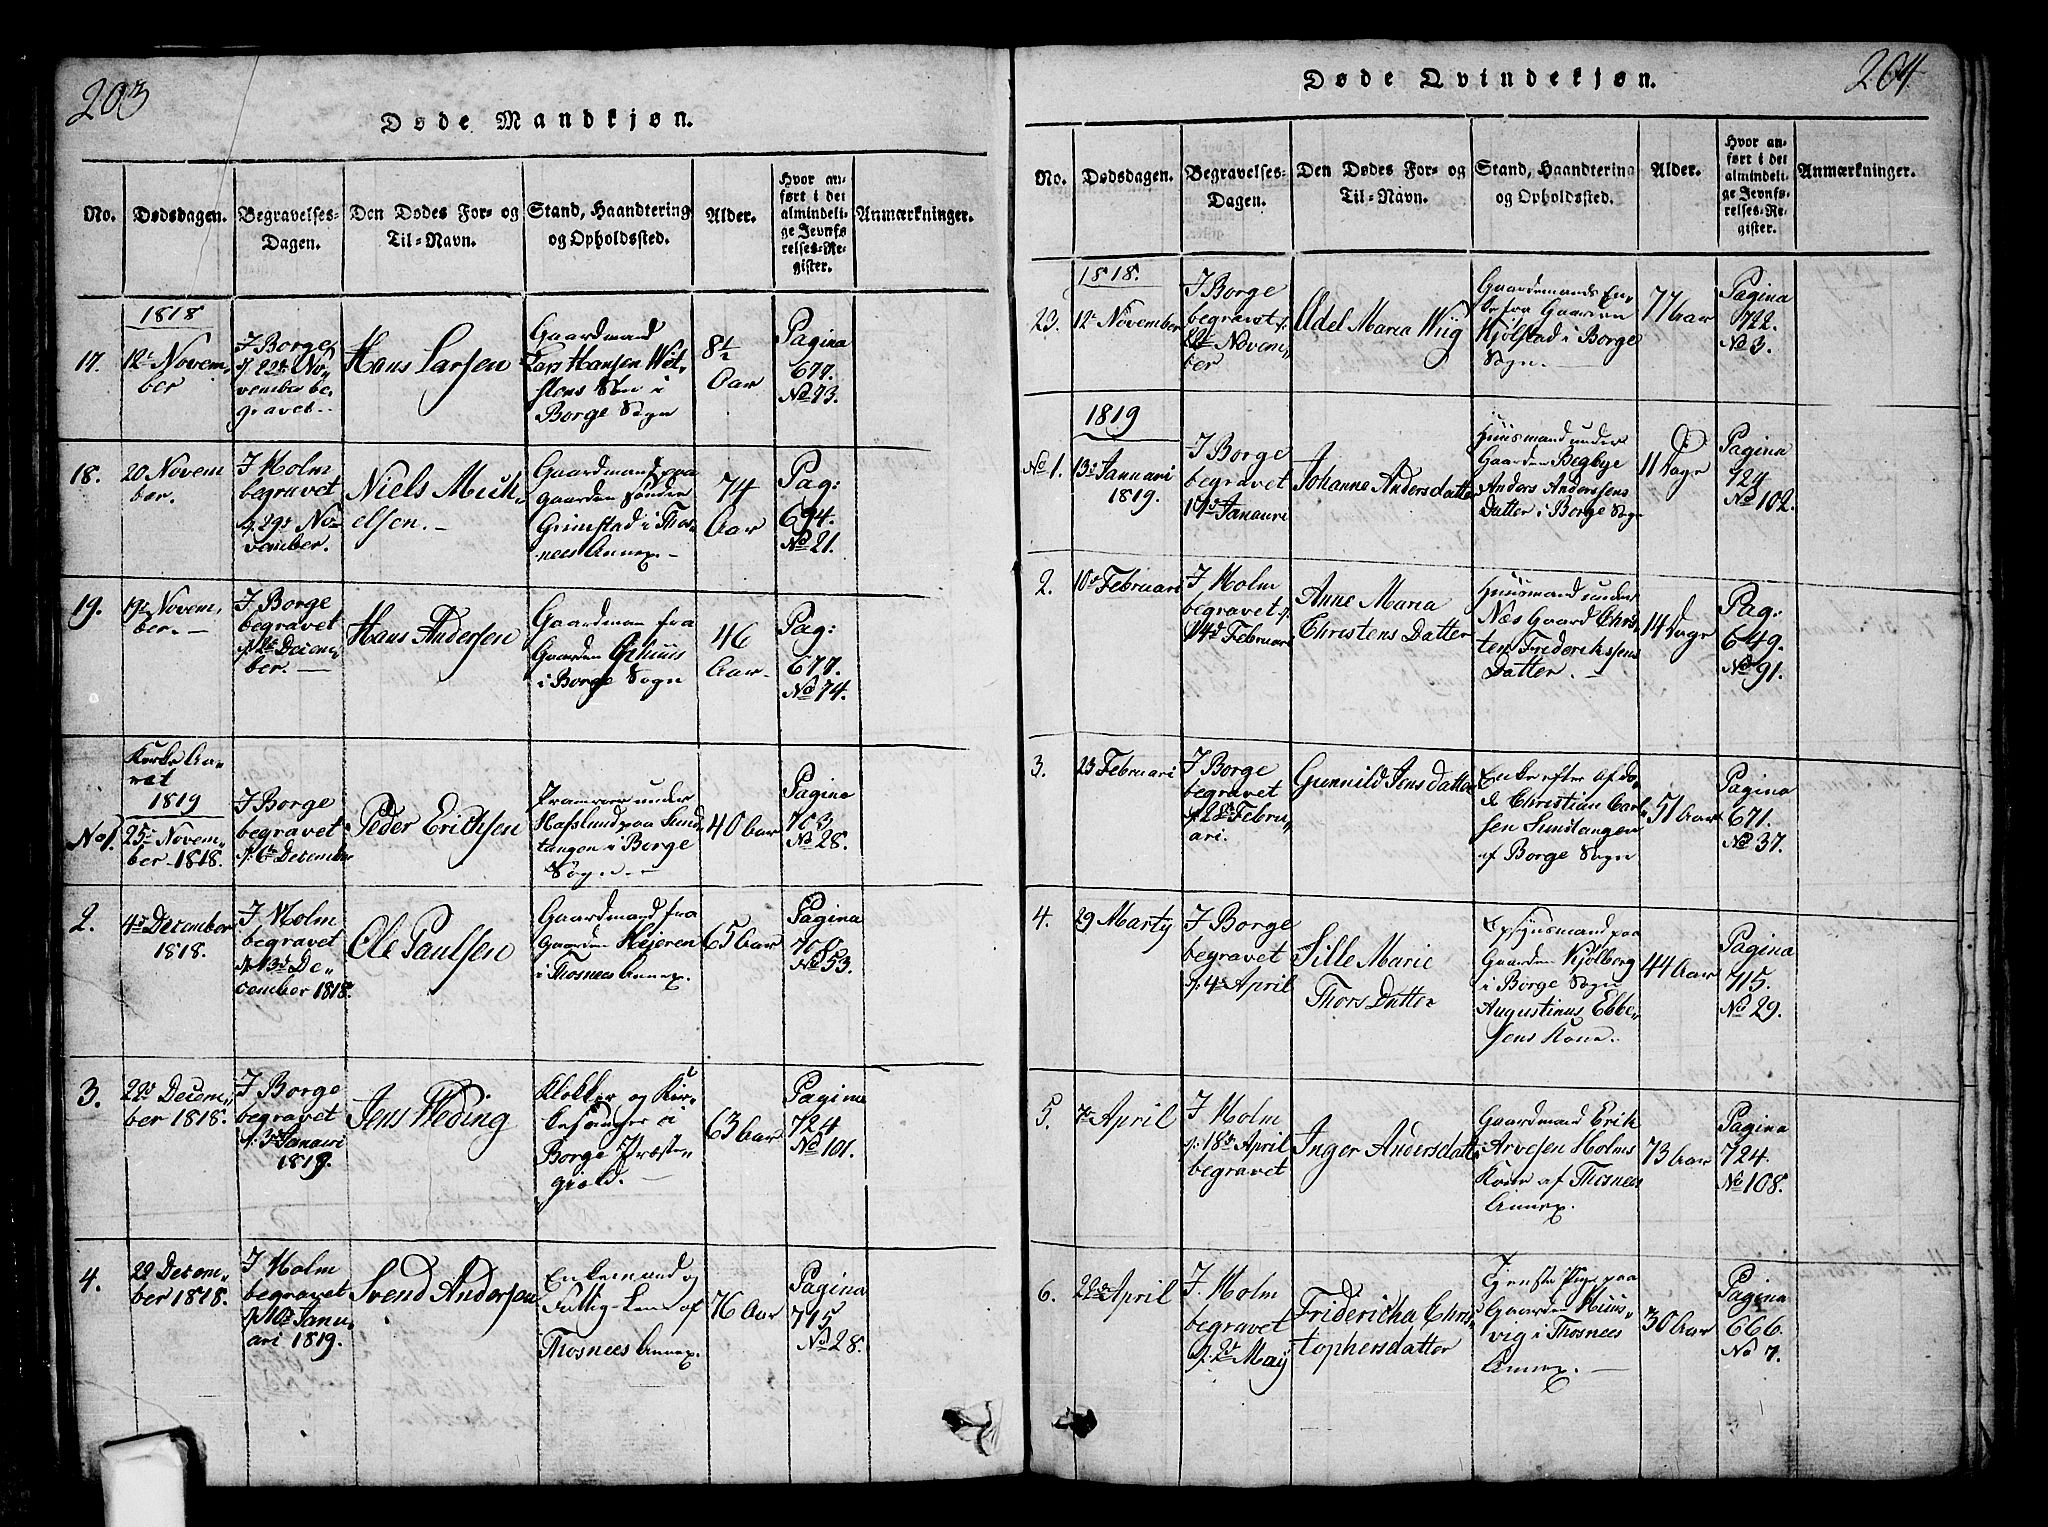 203
Døde Mandkjøn.
No.
Dødsdagen.
Begravelses-
Dagen.
Den Dødes For- og
Til-Navn.
Stand, Haandtering
og Opholdssted.
Alder.
Hvor an-
ført i det
almindeli-
ge Jevnfø-
relses-Re-
gister.
Anmærkninger.
1818
17.
12te Novem-
ber
I Borge
22de No-
vember be-
gravet
Hans Larsen
Gaardmand
Lars Hansen
Søn i
Borge Sogn
8½
Aar
Pagina
677.
No 73.
18.
20 Novem
ber.
I Holm
begravet
29de No-
vember.
Niels Mich-
elsen.
Gaardmand paa
Gaarden Sønder
Grimstad i Thos-
nees Annex.
74
Aar
Pag:
694.
No 21.
19.
19de Novem-
ber.
I Borge
begravet
Decem-
ber.
Hans Andersen
Gaardman fra
Gaarden
i Borge Sogn
46
Aar.
Pag:
677.
No 74.
Kirke Aa-
ret
1819
No 1.
25de Novem-
ber 1818.
I Borge
begravet
6te December
Peder Erichsen
under
Hafslund paa Sund-
tangen i Borge
Sogn
40 Aar
Pagina
703
No 28.
2.
4de December
1818.
I Holm
begravet
13de De-
cember 1818.
Ole Paulsen
Gaardmand fra
Gaarden
i Thosnees Annex.
65 Aar
Pagina
708.
No 53.
3.
22de Decem-
ber 1818.
I Borge
begravet
3de Januari
1819.
Jens Weding
Klokker og Kir-
kesanger i
Borge Præste-
gield.
63 Aar
Pagina
724
No 101.
4.
22 Decem-
ber 1818.
I Holm
begravet
10de Janu-
ari 1819.
Svend Andersen
Enkemand og
Fattig-Lem af
Thosnees Annex.
76 Aar
Pagina
715
No 28.
204
Døde Qvindekjøn.
No.
Dødsdagen.
Begravelses-
Dagen.
Den Dødes For- og
Til-Navn.
Stand, Haandtering
og Opholdssted.
Alder.
Hvor an-
ført i det
almindeli-
ge Jevnfø-
relses-Re-
gister.
Anmærkninger.
1818.
23.
12te November
I Borge
begravet
22de Novem-
ber
Adel Maria Wiig
Gaardmands En-
ke fra Gaarden
Kjølstad i Borge
Sogn.
77 Aar
Pagina
722.
No 3.
1819
No 1.
13de Januari
1819.
I Borge
begravet
17de Janauri
Johanne Andersdatter
Huusmand under
Gaarden Begbye
Anders Anderssens
Datter i Borge Sogn
11 Dage
Pagina
724
No 102.
2.
10de Februari
I Holm
begravet
14de Februari
Anne Maria
Christens Datter
Huusmand under
Næs Gaard Chris-
ten Frederikssens
Datter.
14 Dage
Pag:
649.
No 91.
3.
23 Februari
I Borge
begravet
28de Febru-
ari.
Gunnild Jens datter
Enke efter afdø-
de Christian Carl-
sen Sundtangen
af Borge Sogn
51 Aar
Pagina
671.
No 37.
4.
29 Martij
I Borge
begravet
4de April
Sille Marie
Thors Datter
Opsynsmand paa
Gaarden Kjølberg
i Borge Sogn
Augustinus Ebbe-
sens Kone.
44 Aar
Pagina
715.
No 29.
5.
7de April
I Holm
18de April
begravet
Inger Andersdatter
Gaardmand Erik
Arvesen Holms
Kone af Thosnees
Annex.
73 Aar
Pagina
724.
No 108.
6.
22de April
I Holm
begravet
2den Maij
Fridericha Chris-
tophersdatter
Tjeneste Pige paa
Gaarden Huus-
vig i Thosnees
Annex.
30 Aar
Pagina
666.
No 7.